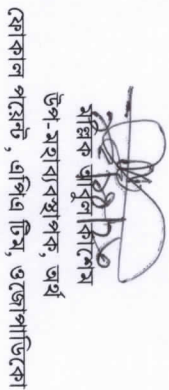 আবুল কাশেম
উপ-মহাব্যবস্থাপক, অর্থ
ফোকাল পয়েন্ট, এপিএ টিম, ওজোপাডিকো